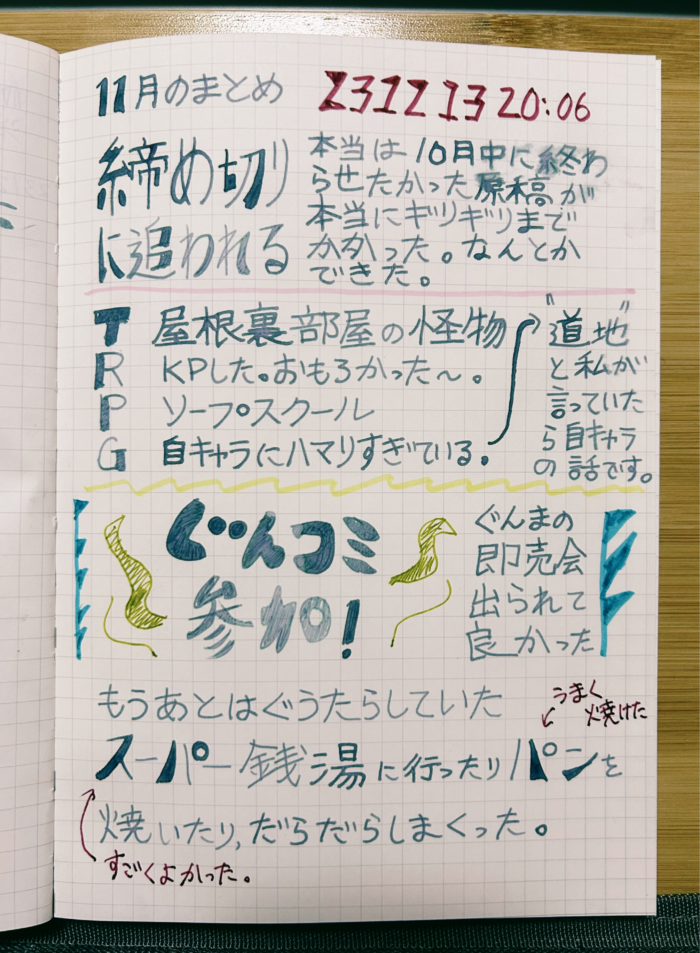 11月のまとめ 231213 20:06
締め切り
に追われる
本当は10月中に終わ
らせたかった原稿が
本当にギリギリまで
かかった。なんとか
できた。
TRPG
屋根裏部屋の怪物
KPした。おもろかった〜。
ソープスクール
自キャラにハマりすぎている。
"道地"
と私が
言っていた
ら自キャラ
の話です。
ぐんコミ
参加!
ぐんまの
即売会
出られて
良かった
もうあとはぐうたらしていた
スーパー銭湯に行ったりパンを
うまく
焼けた
焼いたり、だらだらしまくった。
すごくよかった。